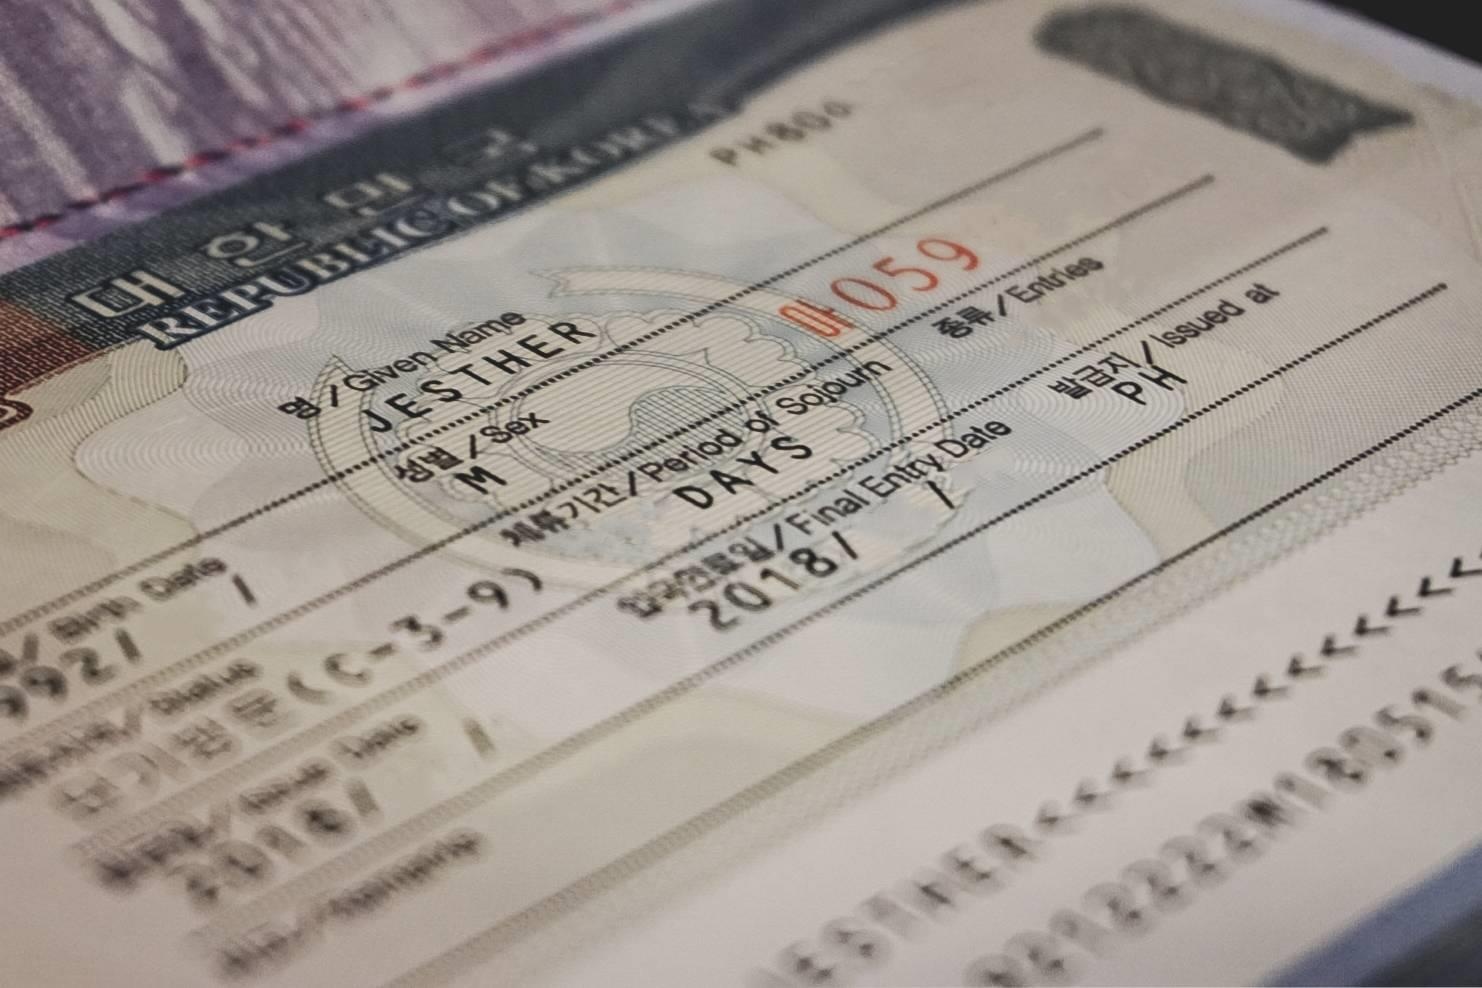 대한민국
REPUBLIC OF KOREA
PH800
명/Given Name
JESTHER
마059
/Birth Date
992/ /
성별/Sex
M
종류/Entries
/Status
단기방문(C-3-9)
체류기간/Period of Sojourn
DAYS
발급지/Issued at
PH
/Issue Date
2018/ /
입국만료일/Final Entry Date
2018/ /
ESTHER<<<<<<<<<<<<<<